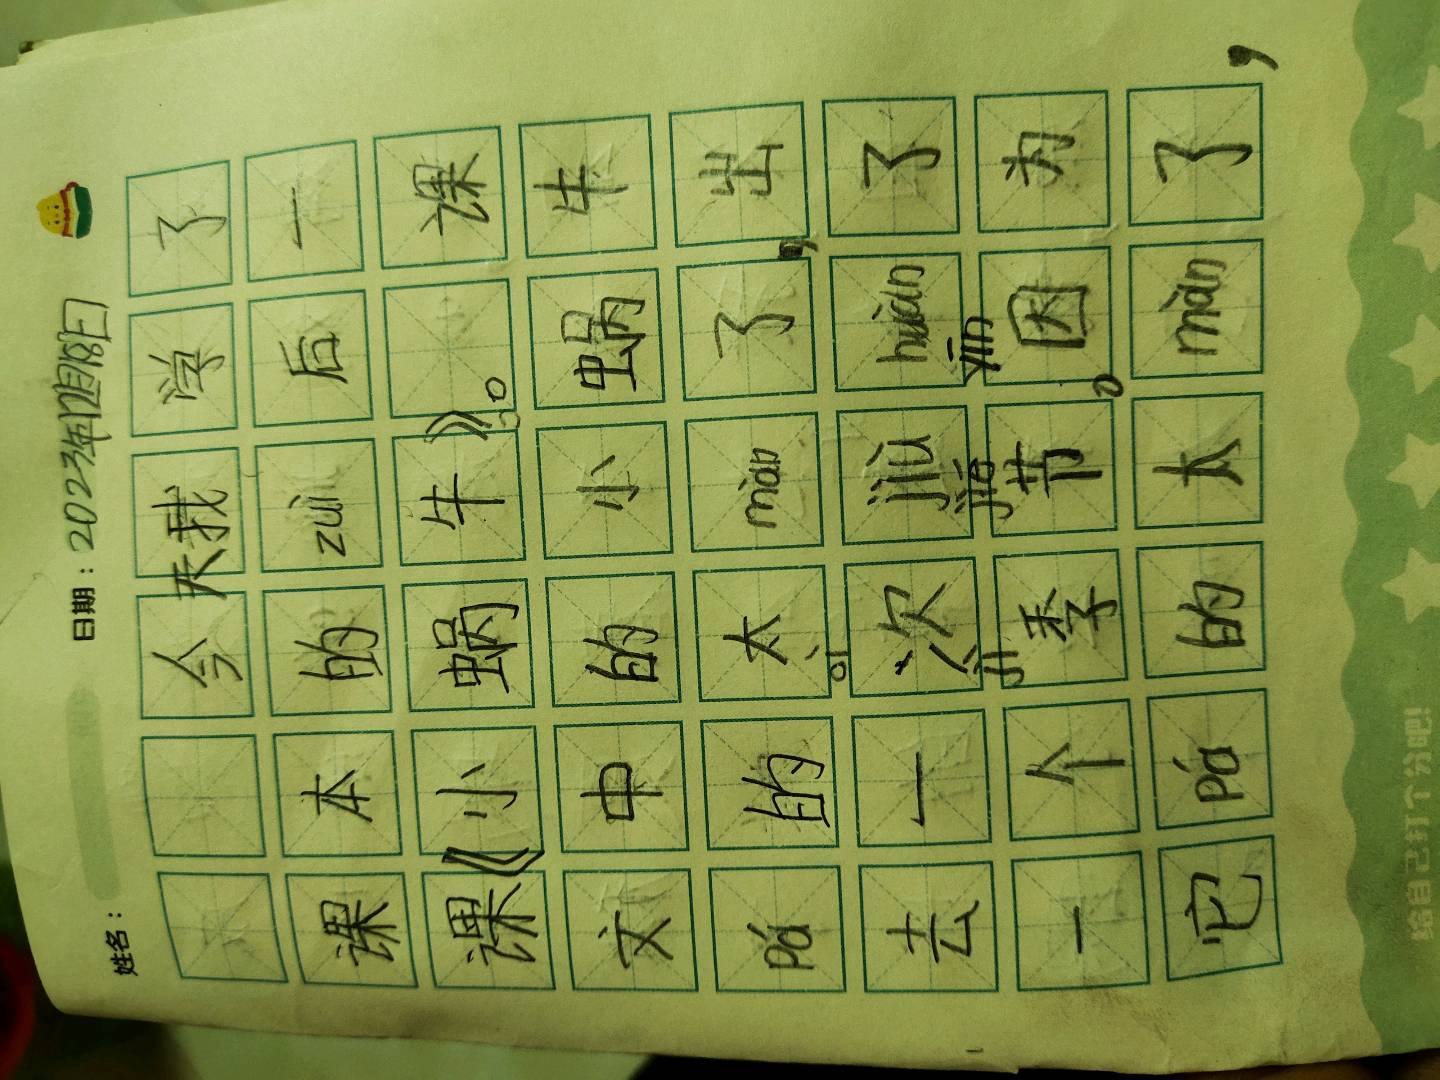 姓名：
日期：2023年12月18日
今天我学了
课本的zuì后一
课《小蜗牛》。
文中的小蜗牛
pá的太màn了，出
去一次jiù huán了
jì jiē yīn
一个季节。因为
它pá的太màn了，
给自己打个分吧！